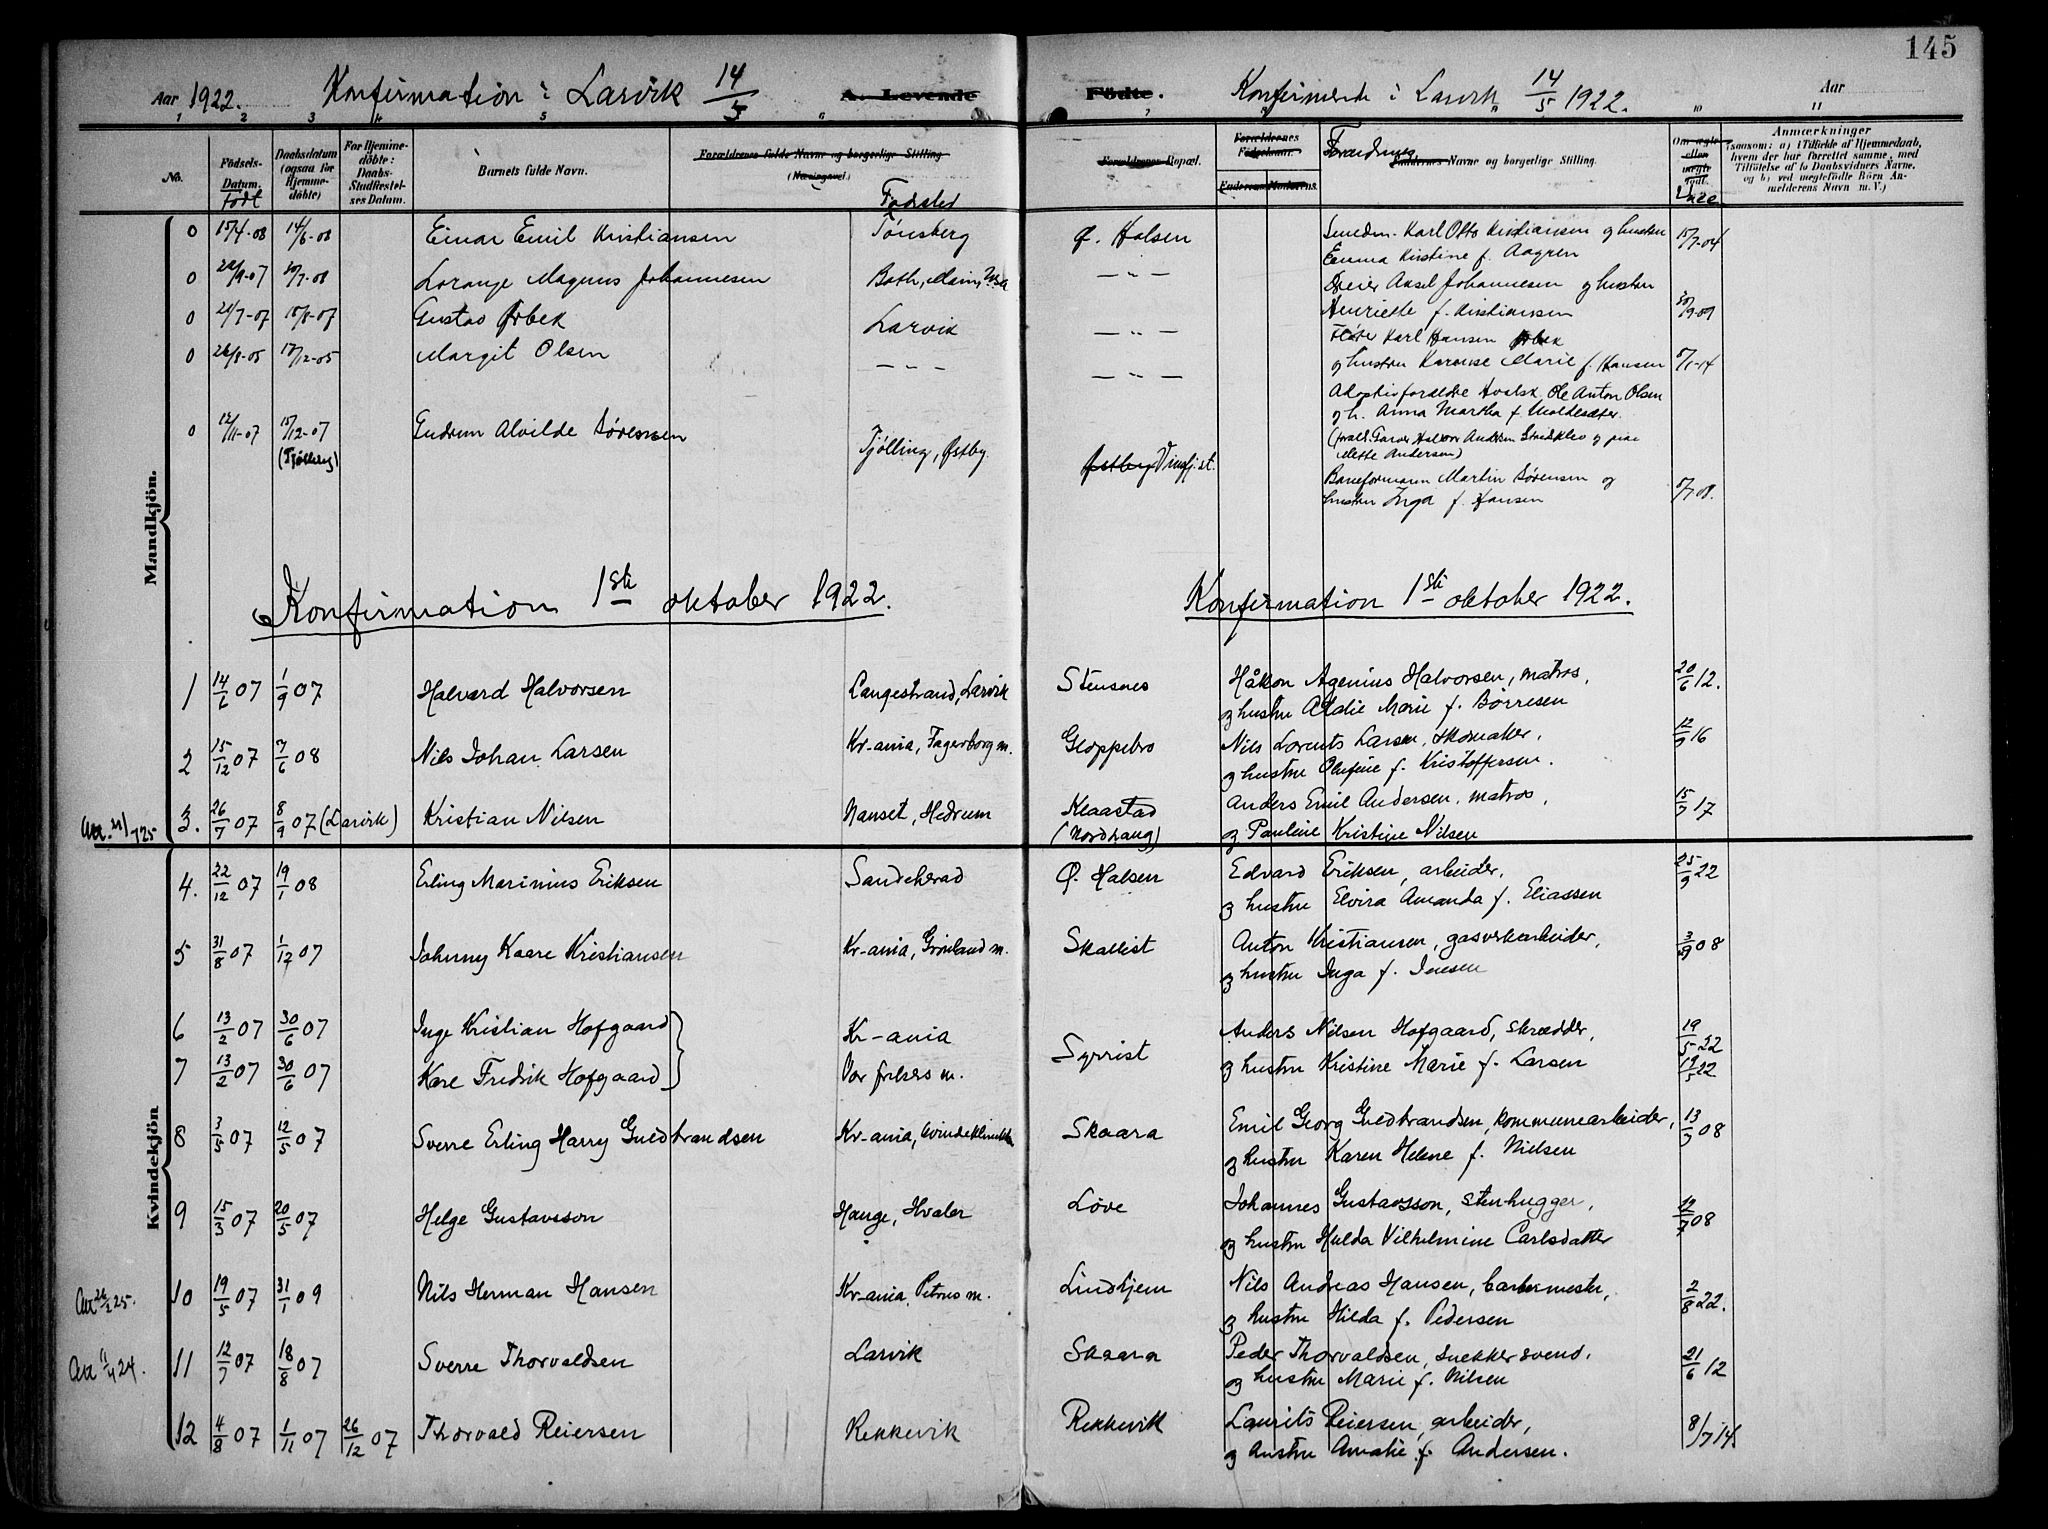 145
Aar 1922. Konfirmation i Larvik 14/5 A. Levende
Födte. Konfirmerede i Larvik 14/5 1922. Aar
1 2 3 4 5 6
7 8 9 10 11
No. Födsels-Datum. født Daabsdatum (ogsaa for Hjemme-döbte) For Hjemme-döbte: Daabs-Stadfæstel-ses Datum. Barnets fulde Navn. Forældrenes fulde Navne og borgerlige Stilling (Næringsvei) Fødested
Forældrenes Bopæl. Forældrenes Födselsaar. Faderens Moderens Forældrenes Faddernes Navne og borgerlige Stilling. Om ægte eller uægte födt. Anmærkninger (saasom: a) i Tilfælde af Hjemmedaab, hvem der har forrettet samme, med Tilföielse af to Daabsvidners Navne. og b) ved uægtefödte Börn An-melderens Navn m. V.)
Mandkjön.
0 15/4-08 14/6-08 Einar Emil Kristiansen Tønsberg Ø. Halsen Karl Otto Kristiansen og hustru Emma Kristine f. Aagren 15/7-04
0 22/9-07 30/7-08 Lorange Magnus Johannesen Bath, Maine, — " — Dreier Axel Johannesen og hustru Henriette f. Kristiansen 30/9-09
0 21/7-07 18/8-07 Gustav Ørbek Larvik — " — Karl Hansen Ørbek og hustru Marie f. Hansen 5/1-14
0 26/8-05 17/12-05 Margit Olsen — — — — " — Adoptivforældre Ole Anton Olsen og h. Anna Martha f.
0 12/11-07 15/12-07 (Tjølling) Gudrun Alvilde Sørensen Tjølling, Østby. Østby
Baneformann Martin Sørensen og hustru Inga f. Hansen 5/7 08.
Konfirmation 1ste oktober 1922.
Konfirmation 1ste oktober 1922.
1 14/6 07 1/9 07 Halvard Halvorsen Langestrand, Larvik Stensnes Håkon Agenius Halvorsen, matros, og hustru Marie f. Børresen 20/6 12.
2 15/12 07 7/6 08 Nils Johan Larsen Kr-ania, Fagerborg m. Gloppebro Nils Lorents Larsen, skomaker, og hustru Olufine f. Kristoffersen. 12/9 16
3. 26/7 07 8/9 07 (Larvik) Kristian Nilsen Nanset, Hedrum Klaastad (Nordhaug) Anders Emil Andersen, matros, og Pauline Kristine Nilsen 15/7 17
Kvindekjön
4. 22/12 07 19/1 08 Erling Marinius Eriksen Sandeherad Ø. Halsen Edvard Eriksen, arbeider, og hustru Elvira Amanda f. Eliassen 25/9 22
5 31/8 07 1/12 07 Johnny Kaare Kristiansen Kr-ania, Grønland m. Skallist Anton Kristiansen, gasverkarbeider, og hustru Inga f. Jensen 3/9 08
6 13/2 07 30/6 07 Inge Kristian Hofgaard Kr-ania Syrrist Anders Nilsen Hofgaard, skrædder, 19/5 22
7 13/2 07 30/6 07 Kåre Fredrik Hofgaard Vor frelsers m. og hustru Kristine Marie f. Larsen 19/5 22
8 3/5 07 12/5 07 Sverre Erling Harry Guldbrandsen Kr-ania, Kvindeklinikk Skaara Emil Georg Guldbrandsen, kommunearbeider, og hustru Karen Helene f. Nielsen 13/7 08
9 15/3 07 20/5 07 Helge Gustavsson Hauge, Hvaler Løve Johannes Gustavsson, stenhugger, og hustru Hulda Vilhelmine Carlsdatter 12/7 08
10 19/5 07 31/1 09 Nils Herman Hansen Kr-ania, Petrus m. Lindhjem Nils Andreas Hansen, barbermester, og hustru Hilda f. Pedersen 2/8 22.
11 12/7 07 18/8 07 Sverre Thorvaldsen Larvik Skaara Peder Thorvaldsen, snekkersvend, og hustru Marie f. Nilsen 21/6 12
12 4/8 07 1/11 07 26/12 07 Thorvald Reiersen Rekkevik Rekkevik Laurits Reiersen, arbeider, og hustru Amalie f. Andersen. 8/7 14